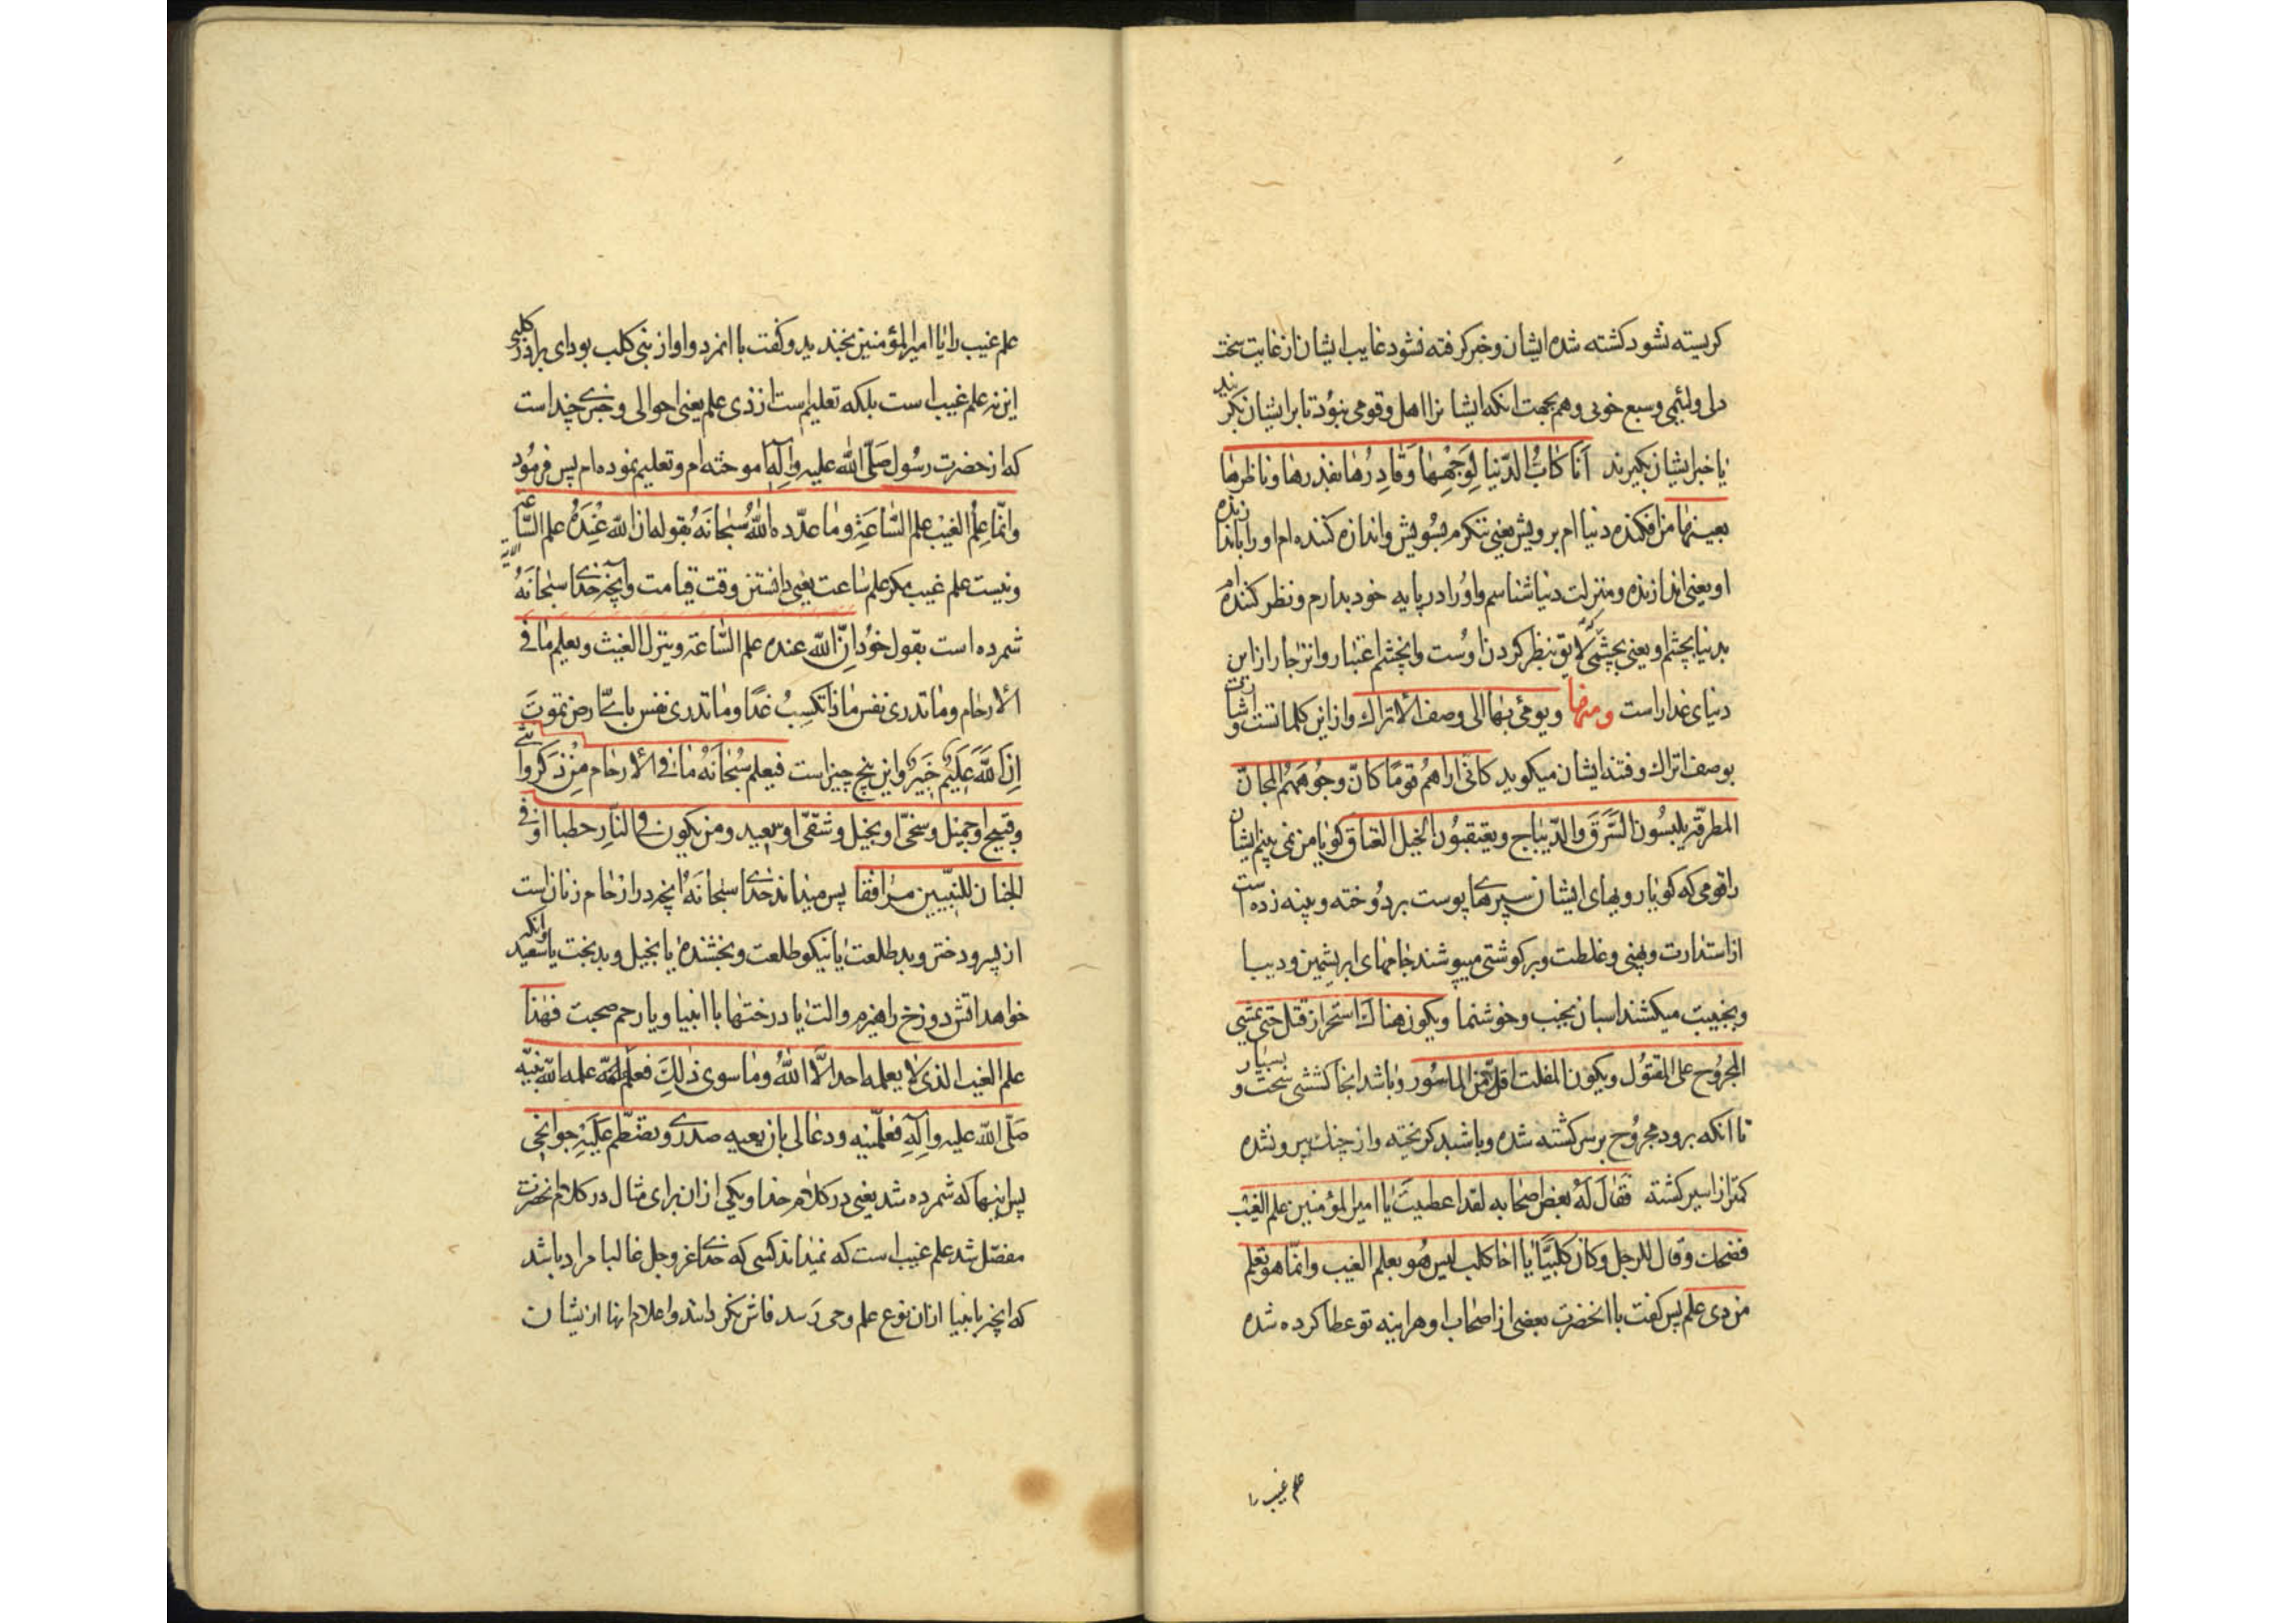 کریسته نشود کشته شده ایشان و خبر کرفته نشود غایب ایشان از غایت سخت
دلی و لئیمی و سبع خویی و هم بجهت انکه ایشا نرا اهل و قومی نبود تا بر ایشان بکریند
یا خبر ایشان بکیرند اَنَا کٰابُّ الدّنیا لِوَجْهِهٰا وَقٰادِرُهٰا بقدرها و ناظرهٰا
بعینهٰا من افکنده دنیاام بر ویش یعنی ننکرم بسُویش و اندازه کننده ام او را باندازه
او یعنی اندازنده و منزلت دنیا شناسم و اوُرا در پایه خود بدارم و نظر کننده ام
بدنیا بچشم او یعنی بچشمی که لایق بنظر کردن اوُست و انچشم اعتبار و انزجار از این
دنیای غدار است ومنهٰا ویومئ بهٰا الی وصف الاتراك و از این کلماتست و اشارت
بوصف اتراك و فتنه ایشان میکوید کانّی اراهمُ قومًا کانّ وجُوهَهُم المجانّ
المطرقّة یلبسُون السَّرَقَ والدّیبٰاج ویعتقبوُن الخیل العتاق کویا من می بینم ایشان
را قومی که کویٰا رویهای ایشان سپرهٰای پوست بر دوُخته و پینه زده است
از استدارت و پهنی و غلظت و پر کوشتی میپوشند جٰامهٰای ابریشمین و دیبا
و بجنیبت میکشند اسبان نجیب و خوشنما ویکون هناك استحرار قتل حتی یمشی
المجرُوح علی المقتُول ویکون المفلت اقلّ من المأسُور و باشد انجا کششی سخت و بسیار
تا انکه برود مجروُح بر سر کشته شده و باشد کریخته و از چنك بیرون شده
کمتر از اسیر کشته فقٰالَ لَهُ بعض اصحٰابه لقد اعطیتَ یٰا امیر المؤمنین علم الغیب
فضحك وقال للرجل وکان کلبیًّا یٰا اخا کلب لیس هُو بعلم الغیب وانّما هو تعلم
من ذی علم پس کفت با انحضرت بعضی از اصحٰاب او هر اینه تو عطا کرده شده
علم غیب را
علم غیب را یٰا امیر المؤمنین بخندید و کفت با انمرد و او از بنی کلب بود ای برادر کلبی
این نه علم غیب است بلکه تعلیم است از ذی علم یعنی احوالی و خبری چند است
که از حضرت رسُول صَلّی اللّٰه علیه وآلِهِ اموخته ام و تعلیم نموده ام پس فرمُود
وانّما عِلْم الغَیْب علم السّٰاعَةِ ومٰا عدّده اللّٰهُ سُبْحٰانَهُ بقوله ان اللّٰه عِنْدَهُ علم السّٰاعة
و نیست علم غیب مکر علم سٰاعت یعنی دٰانستن وقت قیامت و آنچه خدای سبحٰانَهُ
شمرده است بقول خوُد اِنّ اللّٰه عنده علم السّٰاعة وینزل الغیث ویعلم مٰا فی
الارحام ومٰا تدری نفس مٰاذٰا تکسِبُ غدًا ومٰا تدری نفس بایّ ارض تموت
اِنَّ اللّٰهَ عَلِیمٌ خَبِیرٌ و این پنج چیز است فیعلم سُبْحٰانَهُ مٰا فی الارحام مِنْ ذکر او انثی
وقبیح او جمیل وسخیّ او بخیل وشقیّ او سعید ومن یکون فی النّار حطبا او فی
الجنان للنّبیّین مرافقا پس میداند خدای سبحٰانَهُ انچه در ارحٰام زنان است
از پسر و دختر و بد طلعت یٰا نیکو طلعت و بخشنده یا بخیل و بدبخت یٰا سعید و انکه
خواهد اتش دوزخ را هیزم و الت یٰا درختهٰا با انبیا و یا رحم صحبت فهٰذا
علم الغیب الذی لا یعلمه احد الّا اللّٰهُ ومٰا سوی ذٰلِكَ فعلم علمه اللّٰه نبیّه
صَلّی اللّٰه علیه وآلِهِ فعلّمنیه ودعٰا لی بان یعیه صدری وتضطّم عَلَیْهِ جوانحی
پس اینها که شمرده شد یعنی در کلام خدا و یکی از ان برای مثال در کلام انحضرت
مفصّل شد علم غیب است که نمیداند کسی که خدای عزوجل غالبا مراد باشد
که انچه بانبیا از ان نوع علم وحی رَسد فاش نکردانند و اعلام انها از ایشان